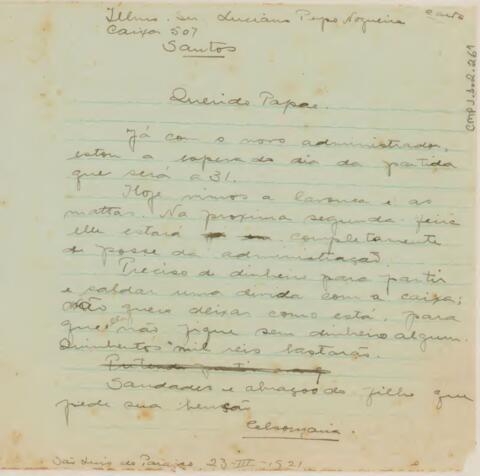 Illmo. Snr. Luciano Pupo Nogueira
Carta
Caixa 507
Santos
CMPJ.1.02.261
Querido Papae.
Já com o novo administrador,
estou a espera do dia da partida
que será a 31.
Hoje vimos a lavoura e as
mattas. Na proxima segunda-feira
elle estará completamente
de posse da administração.
Preciso de dinheiro para partir
e saldar uma divida com a caixa;
não quero deixar como está, para
que ella não fique sem dinheiro algum.
Quinhentos mil reis bastarão.
Saudades e abraços do filho que
pede sua benção
Celsomaria.
São Luiz do Paraizo, 23-III-1921